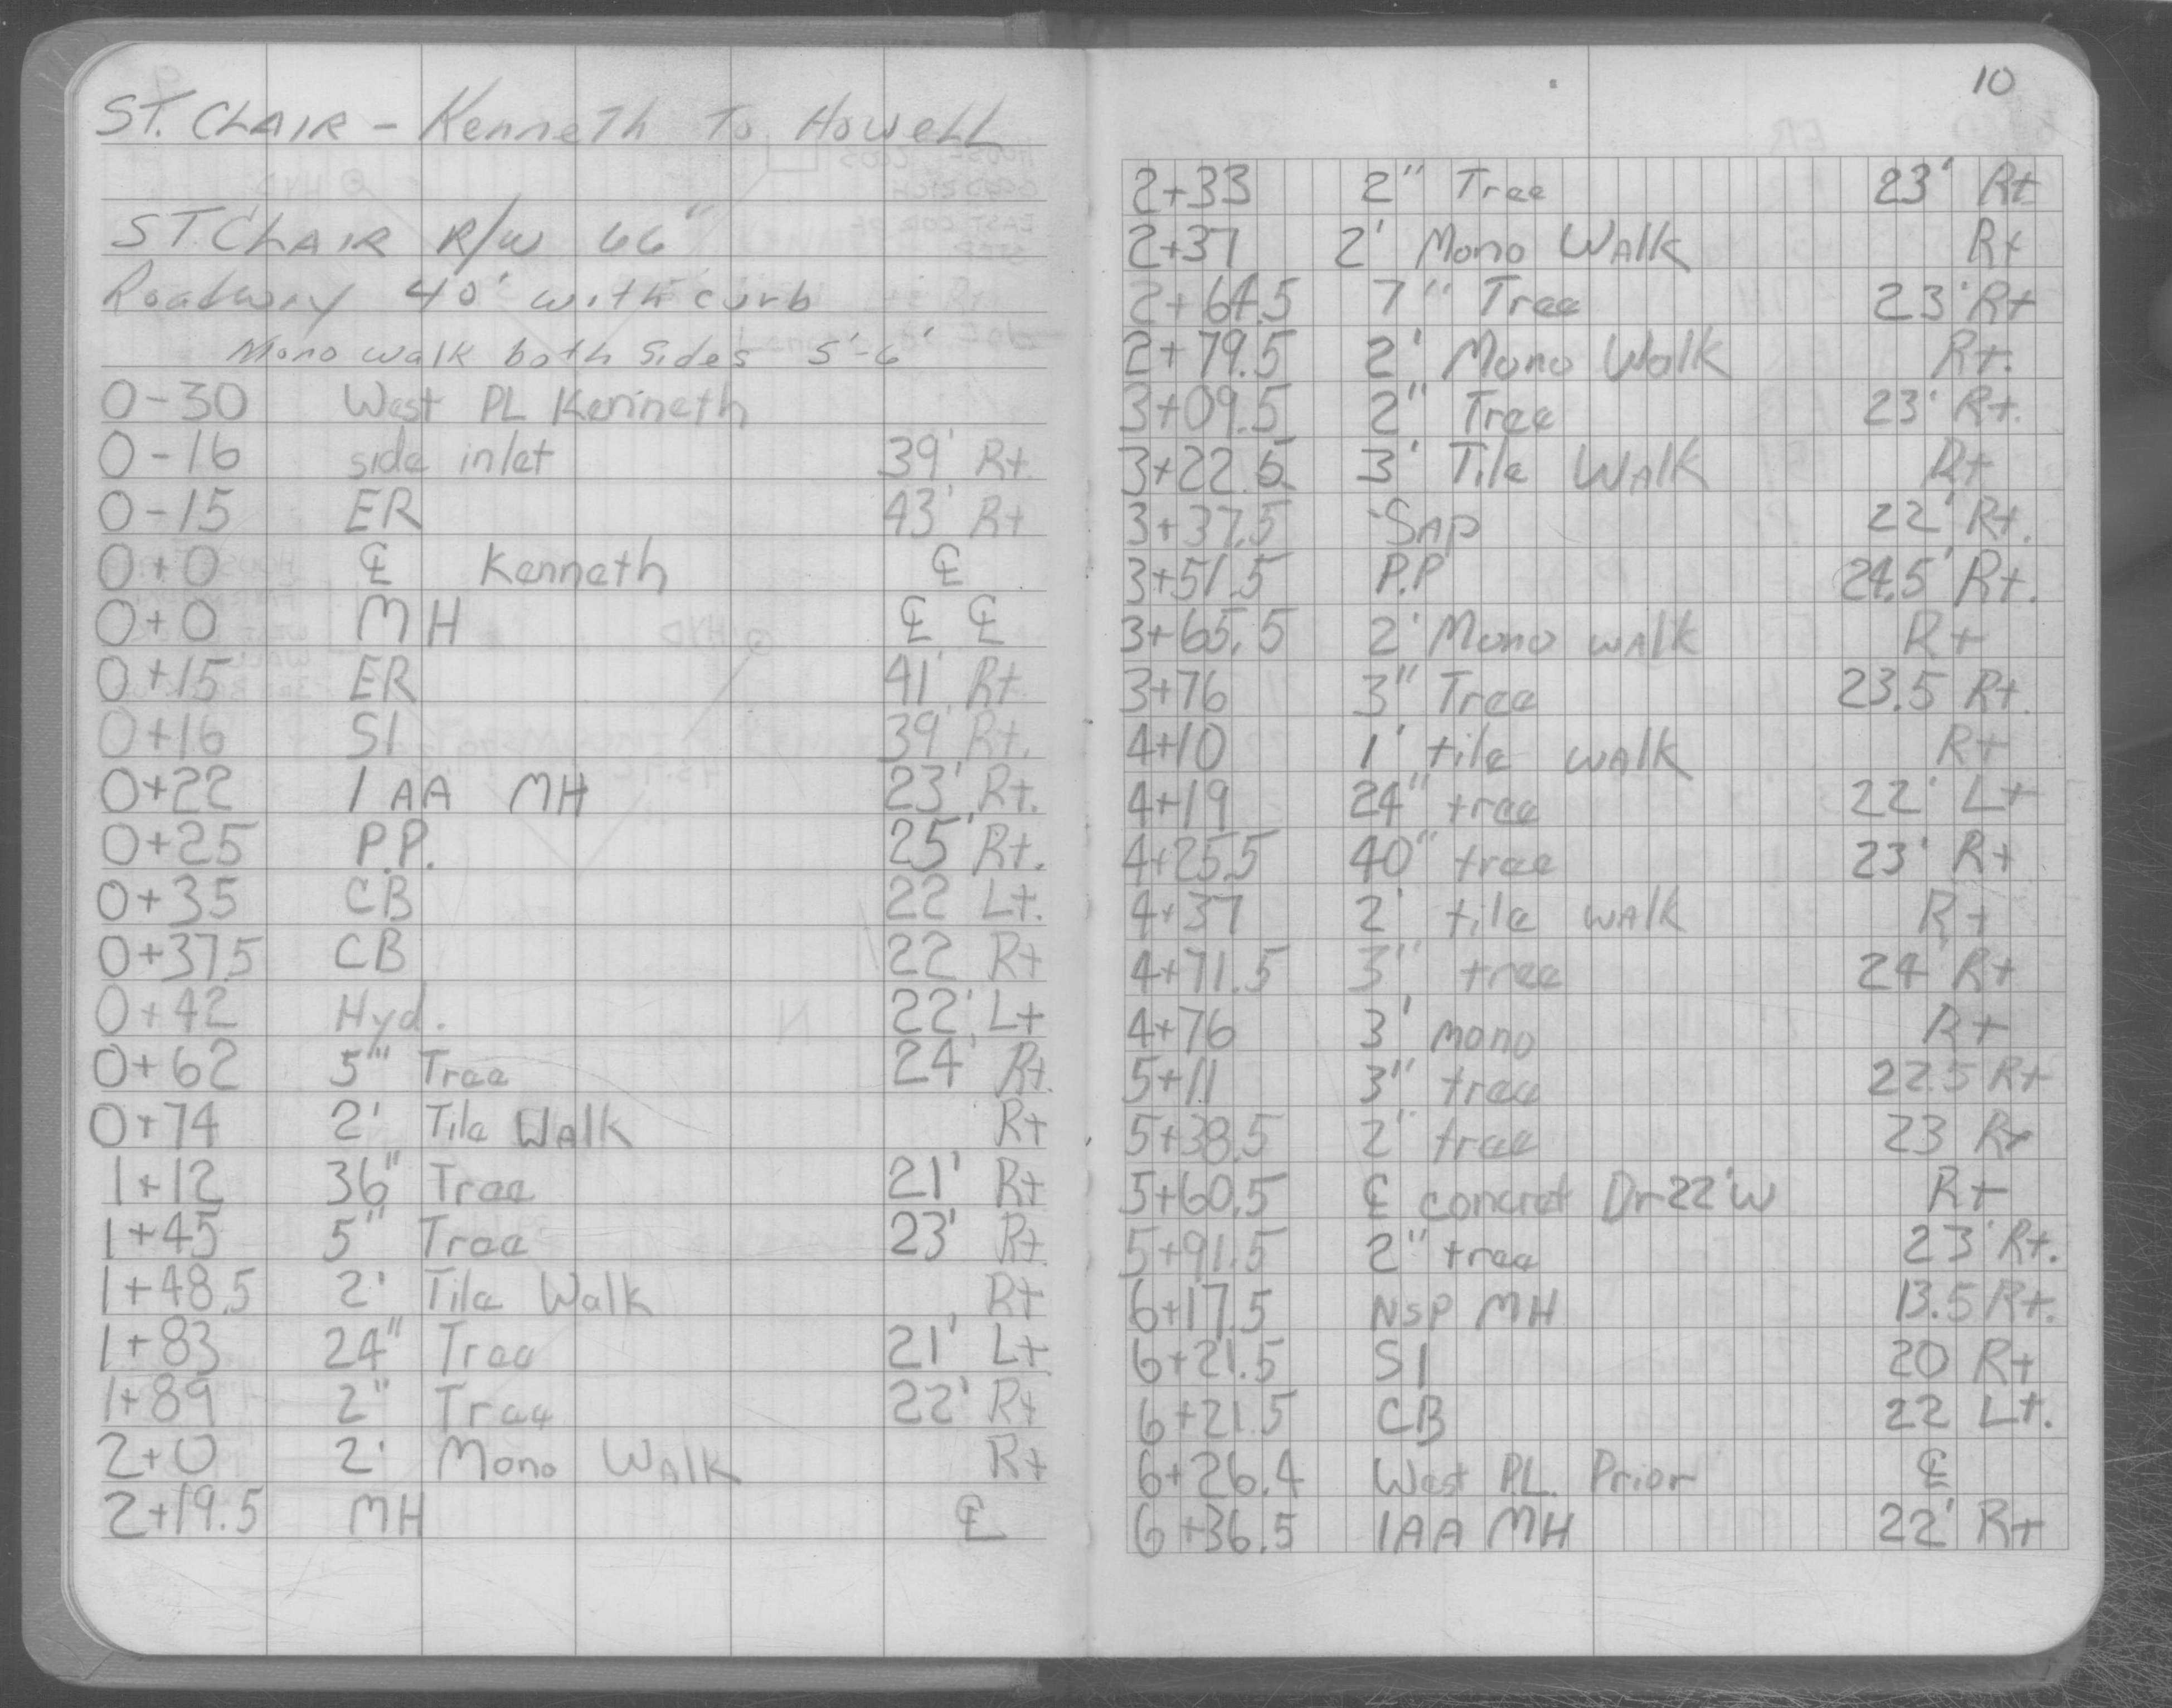 ST. CLAIR - Kenneth To Howell
ST CLAIR R/W 66"
Roadway 40' with curb
Mono walk both sides 5'-6'
0-30 West PL Kenneth
0-16 side inlet 39' Rt.
0-15 ER 43' Rt
0+0 ℄ Kenneth ℄
0+0 MH ℄ ℄
0+15 ER 41' Rt
0+16 SI 39' Rt.
0+22 1 AA MH 23' Rt.
0+25 P.P. 25' Rt.
0+35 CB 22 Lt.
0+37.5 CB 22 Rt
0+42 Hyd. 22' Lt
0+62 5" Tree 24' Rt.
0+74 2' Tile Walk Rt
1+12 36" Tree 21' Rt
1+45 5" Tree 23' Rt
1+48.5 2' Tile Walk Rt
1+83 24" Tree 21' Lt
1+89 2" Tree 22' Rt
2+0 2' Mono Walk Rt
2+19.5 MH ℄
10
2+33 2" Tree 23' Rt
2+37 2' Mono Walk Rt
2+64.5 7" Tree 23' Rt
2+79.5 2' Mono Walk Rt.
3+09.5 2" Tree 23' Rt.
3+22.5 3' Tile Walk Rt
3+37.5 SAP 22' Rt.
3+51.5 P.P 24.5' Rt.
3+65.5 2' Mono walk Rt
3+76 3" Tree 23.5 Rt.
4+10 1' tile walk Rt
4+19 24" tree 22' Lt
4+25.5 40" tree 23' Rt
4+37 2' tile walk Rt
4+71.5 3" tree 24' Rt
4+76 3' mono Rt
5+11 3" tree 22.5 Rt
5+38.5 2" tree 23 Rt
5+60.5 ℄ concret Dr 22'W Rt
5+91.5 2" tree 23' Rt.
6+17.5 NSP MH 13.5 Rt.
6+21.5 SI 20 Rt
6+21.5 CB 22 Lt.
6+26.4 West P.L. Prior ℄
6+36.5 1AA MH 22' Rt